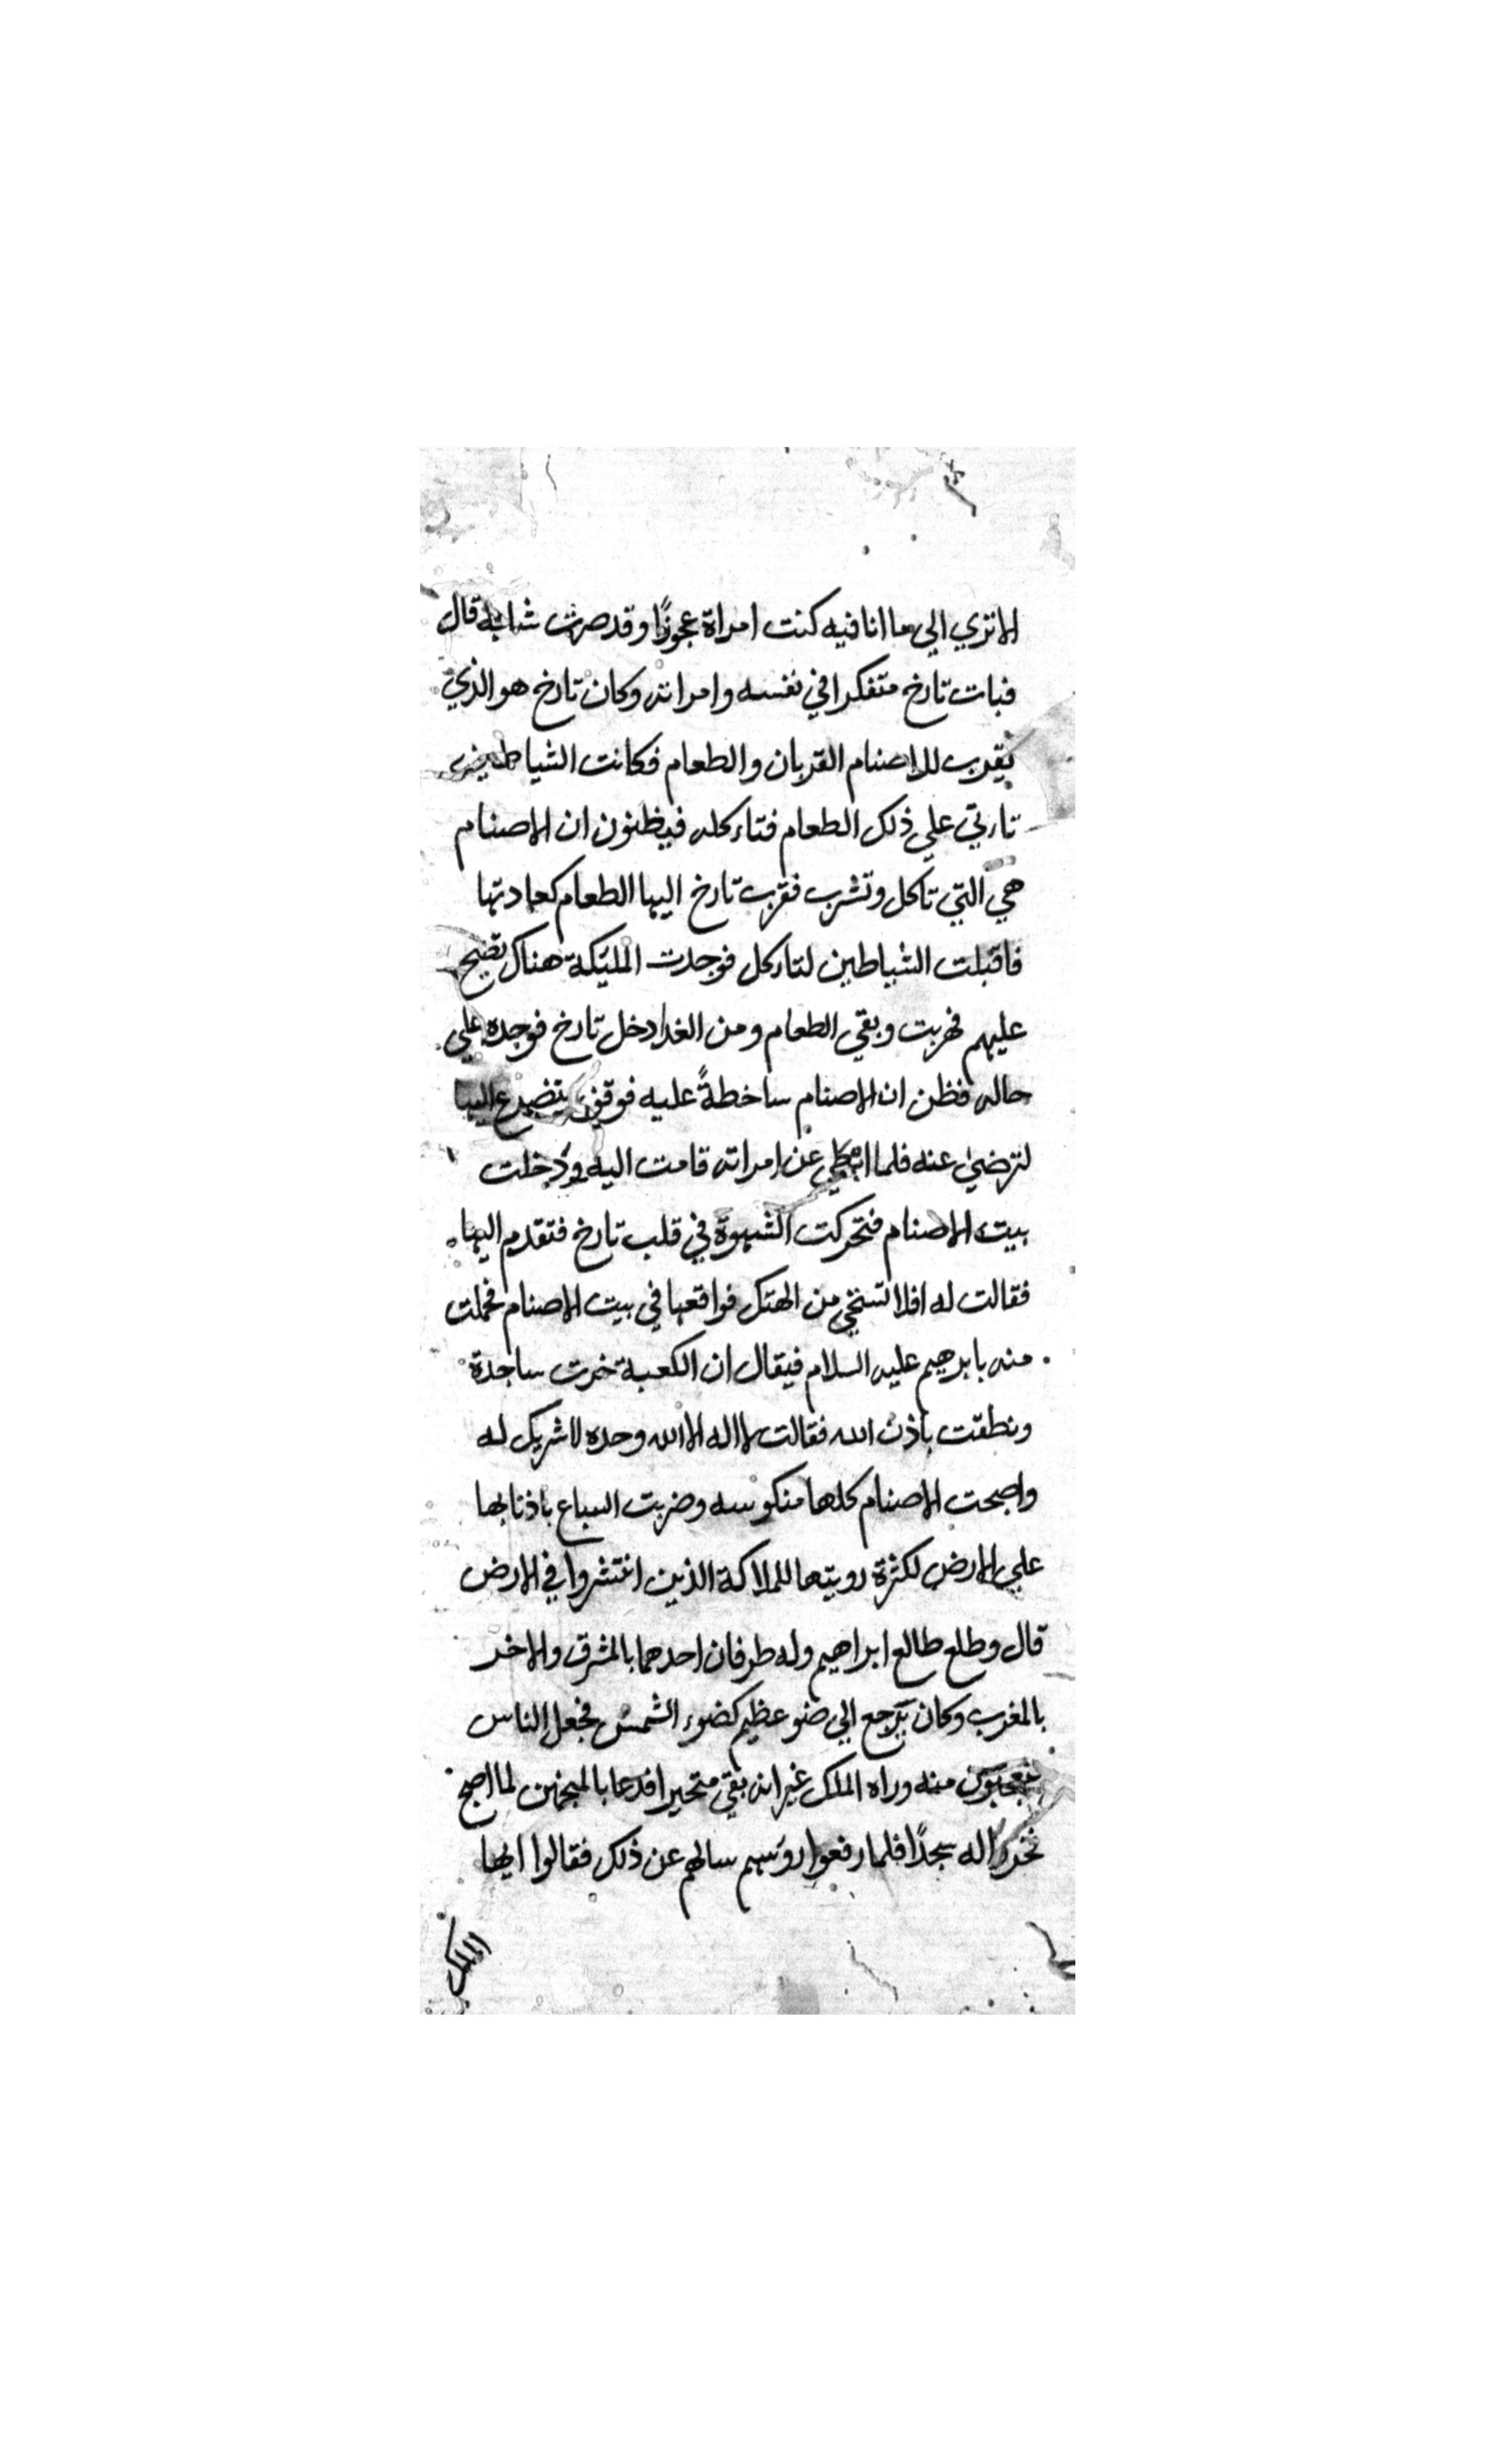 الا تري الي ما انا فيه كنت امراة عجوزًا وقد صرت شابه قال
فبات تارخ متفكرا في نفسه وامراته وكان تارخ هو الذي
يقرب للاصنام القربان والطعام فكانت الشياطين
تاءتي علي ذلك الطعام فتاءكله فيظنون ان الاصنام
هي التي تاكل وتشرب فقرب تارخ اليها الطعام كعادتها
فاقبلت الشياطين لتاءكل فوجدت المليكة هناك تصيح
عليهم فهربت وبقي الطعام ومن الغد ادخل تارخ فوجده علي
حاله فظن ان الاصنام ساخطةً عليه فوقف يتضرع اليها
لترضي عنه فلما ابطي عن امراته قامت اليه ودخلت
بيت الاصنام فتحركت الشهوة في قلب تارخ فتقدم اليها
فقالت له افلا تستحي من الهتك فواقعها في بيت الاصنام فحملت
منه بابرهيم عليه السلام فيقال ان الكعبة خرت ساجدة
ونطقت باذن الله فقالت لا اله الا الله وحده لا شريك له
واصبحت الاصنام كلها منكوسه وضربت السباع باذنابها
علي الارض لكثرة رويتها للملاكة الذين انتشروا في الارض
قال وطلع طالع ابراهيم وله طرفان احدهما بالمشرق والاخر
بالمغرب وكان يرجع الي ضو عظيم كضوء الشمس فجعل الناس
يتعجبون منه وراه الملك غير انه بقي متحيرا فدعا بالمنجمين لما اصبح
فخروا له سجدًا فلما رفعوا روسهم سالهم عن ذلك فقالوا ايها
الملك